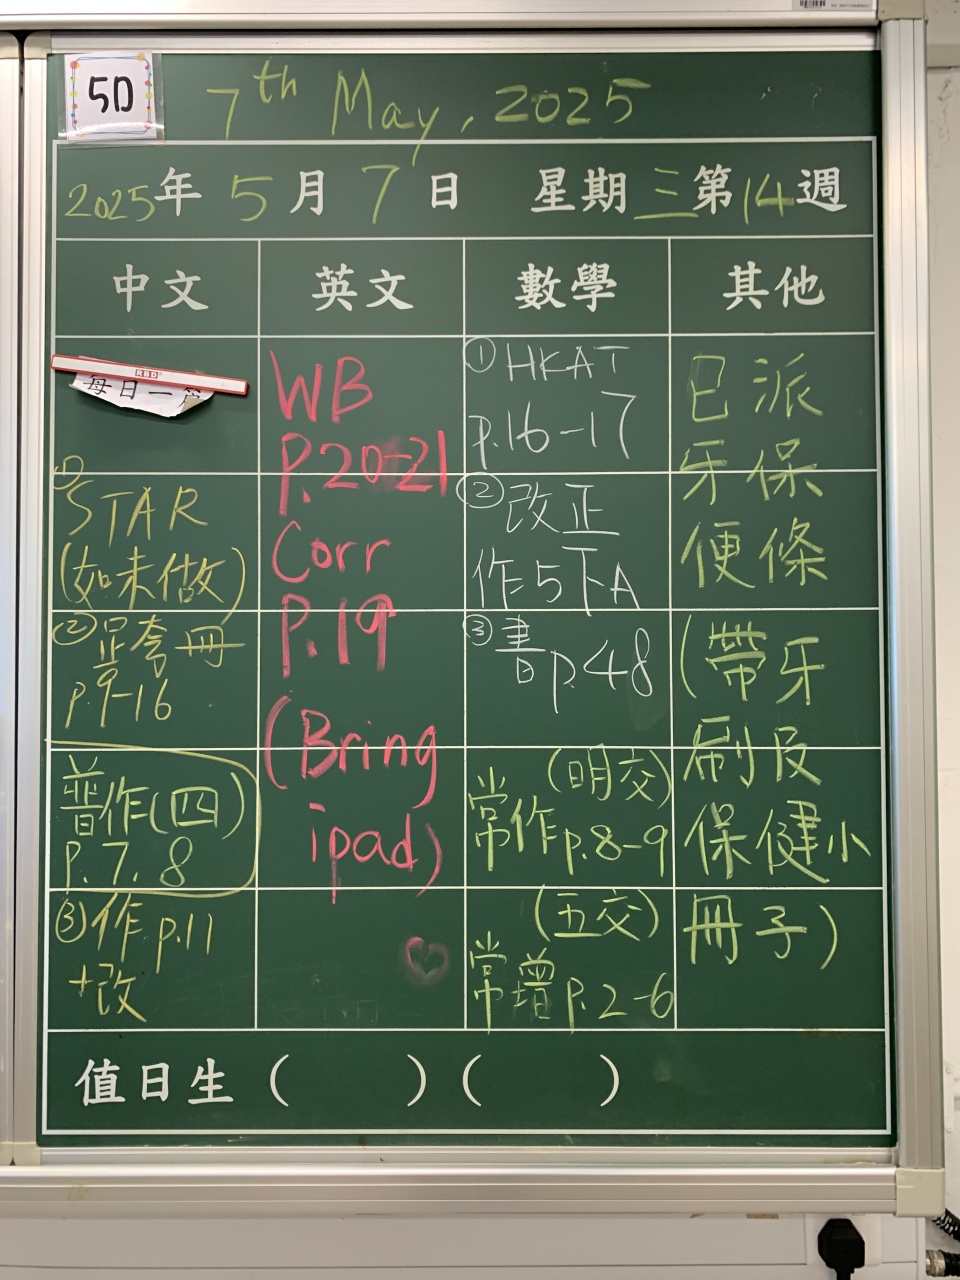 5D
7th May, 2025
2025年5月7日 星期三第14週
中文
英文
數學
其他
RBD
每日一篇
① STAR
(如未做)
p.9-16
普作(四)
p.7, 8
③作 p.11
+改
WB
P.20-21
Corr
P.19
(Bring
ipad)
① HKAT
p.16-17
② 改正
作5下A
③書p.48
(明交)
常作p.8-9
(五交)
常增p.2-6
已派
牙保
便條
(帶牙
刷及
保健小
冊子)
值日生( )( )